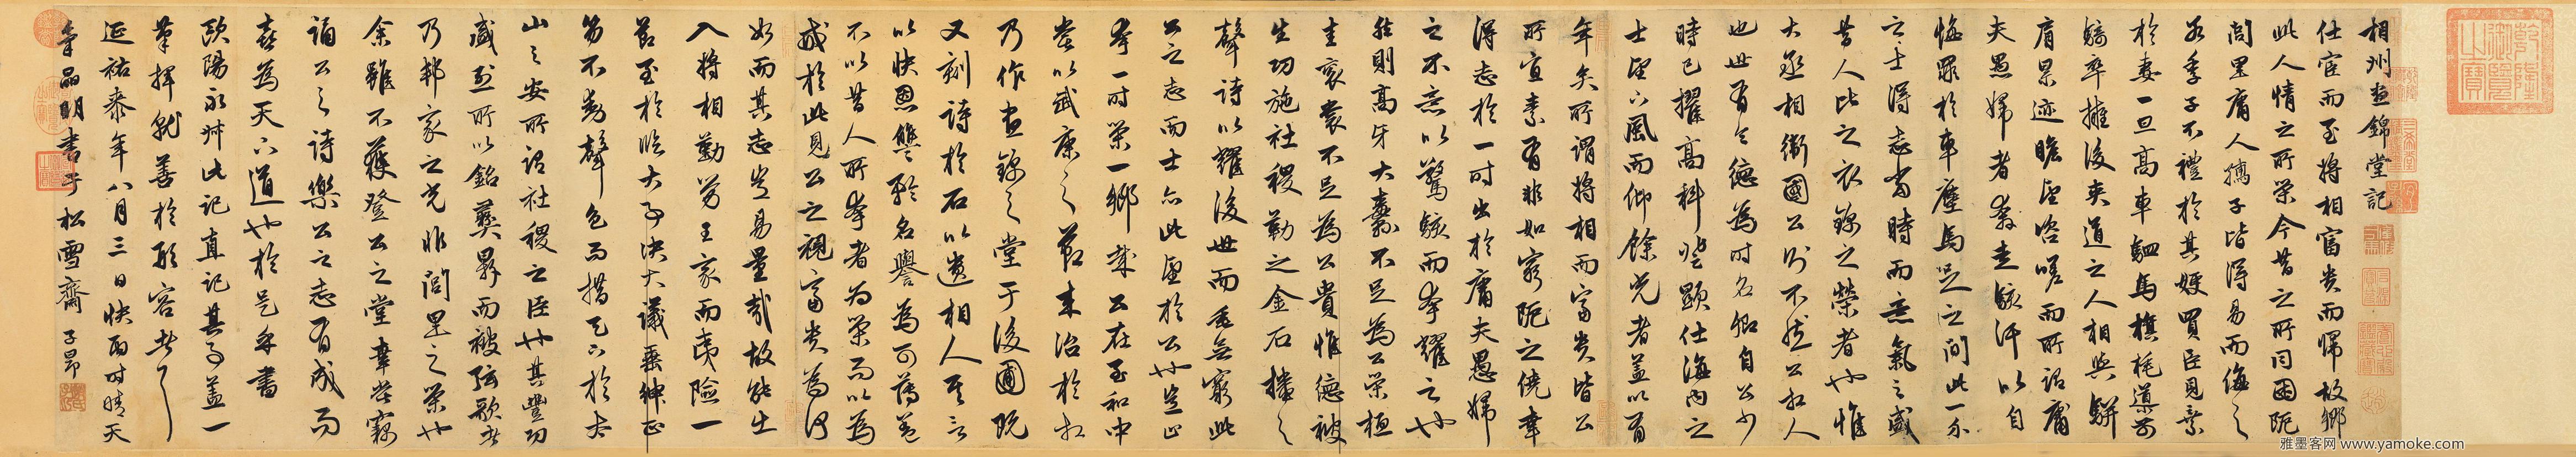 乾隆御覽之寶
相州晝錦堂記
仕宦而至將相富貴而歸故鄉
此人情之所榮今昔之所同困阨
閭里庸人孺子皆得易而侮之
若季子不禮於其嫂買臣見棄
於妻一旦高車駟馬旗旄導前
騎卒擁後夾道之人相與駢
肩累迹瞻望咨嗟而所謂庸
夫愚婦者奔走駭汗以自
悔罪於車塵馬足之間此一介
之士得志當時而意氣之盛
昔人比之衣錦之榮者也惟
大丞相衛國公則不然公相人
也世有令德為時名卿自公少
時已擢高科登顯仕海內之
士望下風而仰餘光者蓋以有
年矣所謂將相而富貴皆公
所宜素有非如窮阨之僥幸
得志於一時出於庸夫愚婦
之不意以驚駭而夸耀之也
然則高牙大纛不足為公榮桓
圭衮裳不足為公貴惟德被
生功施社稷勒之金石播之
聲詩以耀後世而垂無窮此
公之志而士亦此望於公也豈止
夸一時榮一鄉哉公在至和中
嘗以武康之節來治於相
乃作晝錦之堂于後圃既
又刻詩於石以遺相人其言
以快恩讎矜名譽為可薄蓋
不以昔人所夸者為榮而以為
戒於此見公之視富貴為何
如而其志豈易量哉故能出
入將相勤勞王家而夷險一
節至於臨大事決大議垂紳正
笏不動聲色而措天下於太
山之安所謂社稷之臣也其豐功
盛烈所以銘彝鼎而被弦歌者
乃邦家之光非閭里之榮也
余雖不獲登公之堂幸嘗竊
誦公之詩樂公之志有成而
喜為天下道也於是乎書
歐陽永叔此記直記其事蓋一
筆揮就善於形容者
延祐泰年八月三日快雨時晴天
明書于松雪齋 子昂
雅墨客网 www.yamoke.com